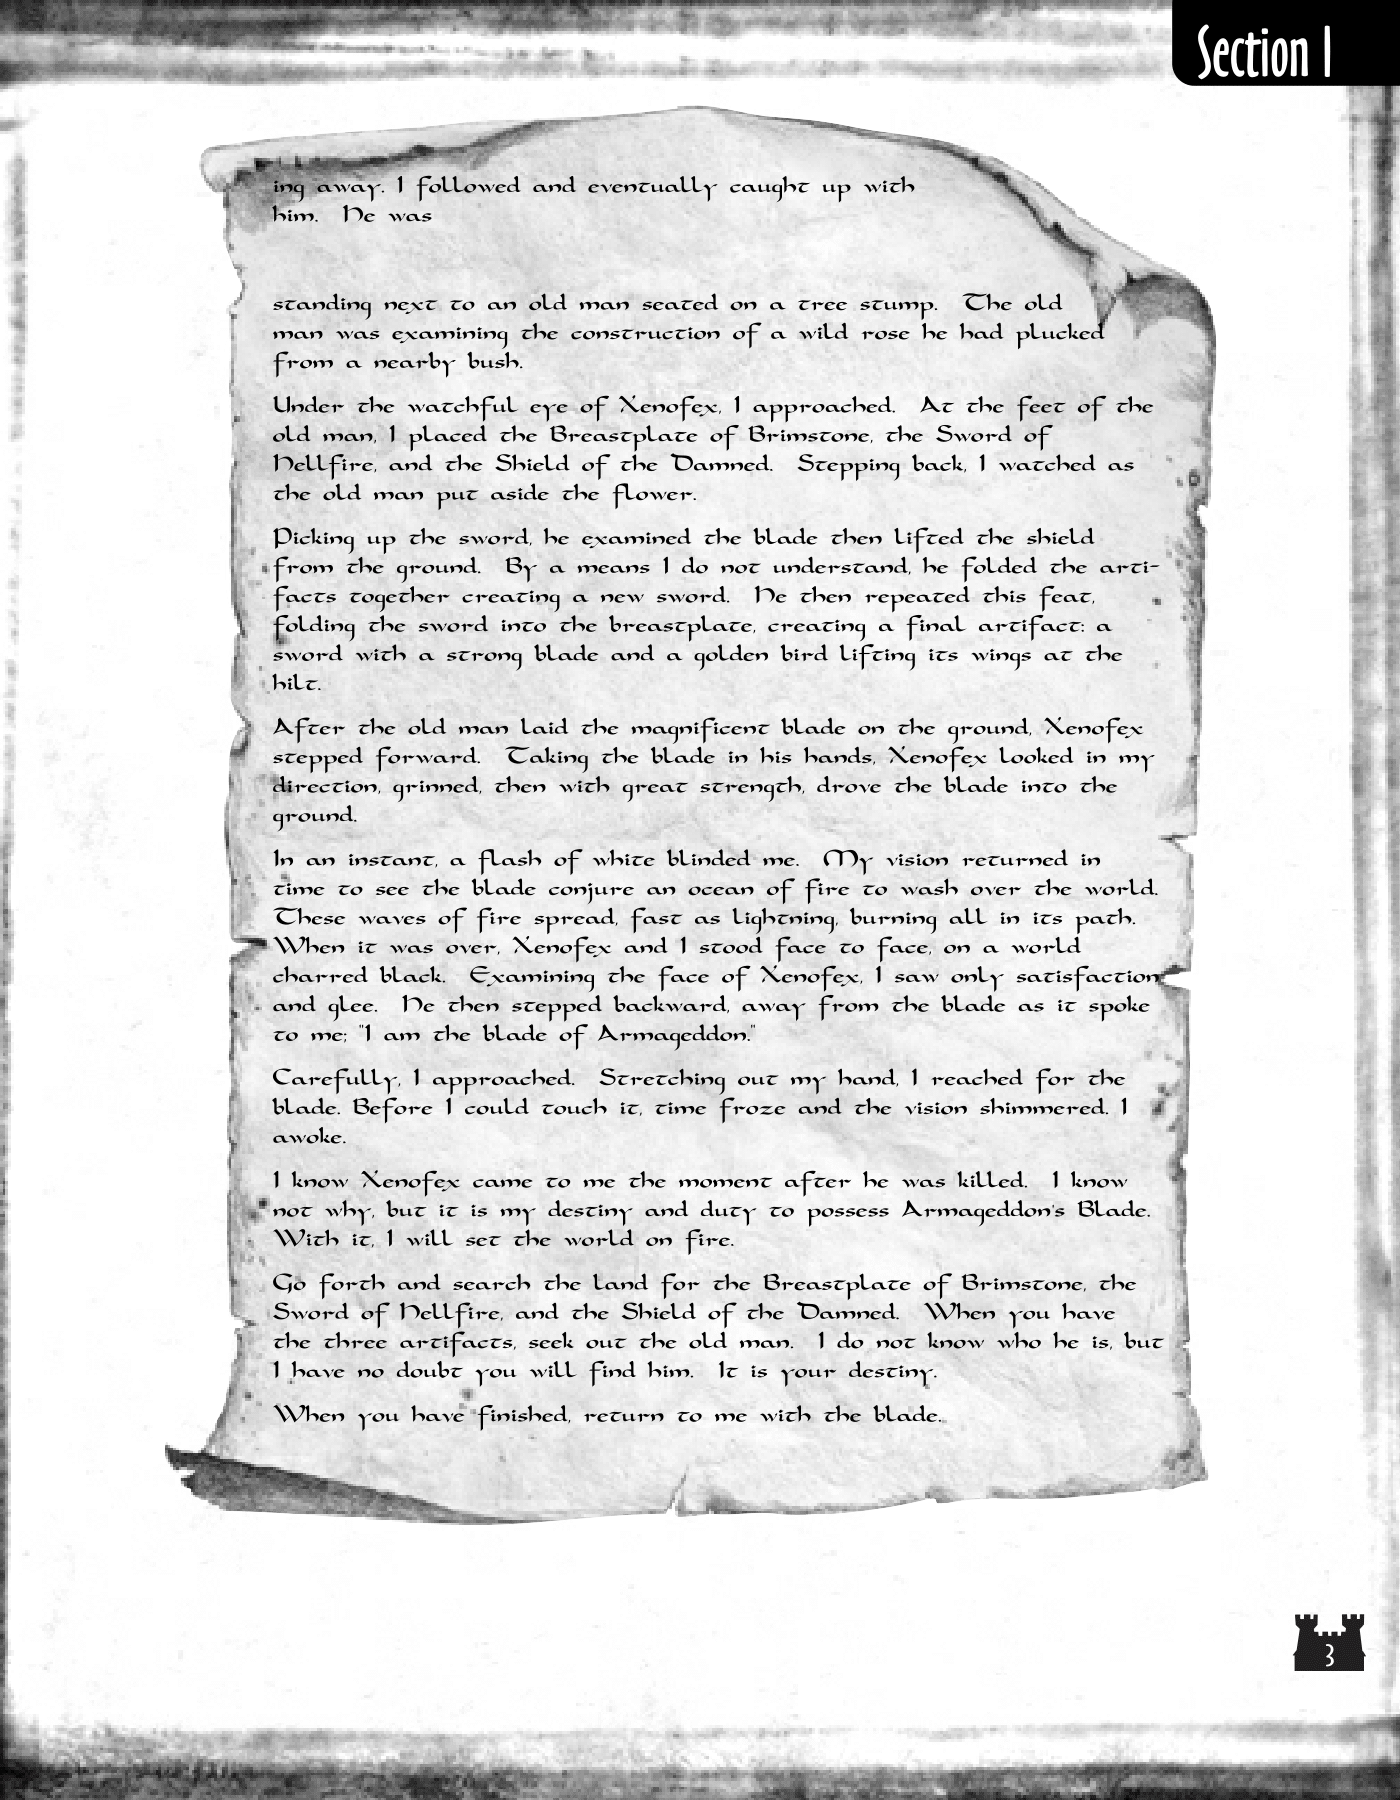 Section 1
ing away. I followed and eventually caught up with
him. He was
standing next to an old man seated on a tree stump. The old
man was examining the construction of a wild rose he had plucked
from a nearby bush.
Under the watchful eye of Xenofex, I approached. At the feet of the
old man, I placed the Breastplate of Brimstone, the Sword of
Hellfire, and the Shield of the Damned. Stepping back, I watched as
the old man put aside the flower.
Picking up the sword, he examined the blade then lifted the shield
from the ground. By a means I do not understand, he folded the arti-
facts together creating a new sword. He then repeated this feat,
folding the sword into the breastplate, creating a final artifact: a
sword with a strong blade and a golden bird lifting its wings at the
hilt.
After the old man laid the magnificent blade on the ground, Xenofex
stepped forward. Taking the blade in his hands, Xenofex looked in my
direction, grinned, then with great strength, drove the blade into the
ground.
In an instant, a flash of white blinded me. My vision returned in
time to see the blade conjure an ocean of fire to wash over the world.
These waves of fire spread, fast as lightning, burning all in its path.
When it was over, Xenofex and I stood face to face, on a world
charred black. Examining the face of Xenofex, I saw only satisfaction
and glee. He then stepped backward, away from the blade as it spoke
to me; "I am the blade of Armageddon."
Carefully, I approached. Stretching out my hand, I reached for the
blade. Before I could touch it, time froze and the vision shimmered. I
awoke.
I know Xenofex came to me the moment after he was killed. I know
not why, but it is my destiny and duty to possess Armageddon's Blade.
With it, I will set the world on fire.
Go forth and search the land for the Breastplate of Brimstone, the
Sword of Hellfire, and the Shield of the Damned. When you have
the three artifacts, seek out the old man. I do not know who he is, but
I have no doubt you will find him. It is your destiny.
When you have finished, return to me with the blade.
3